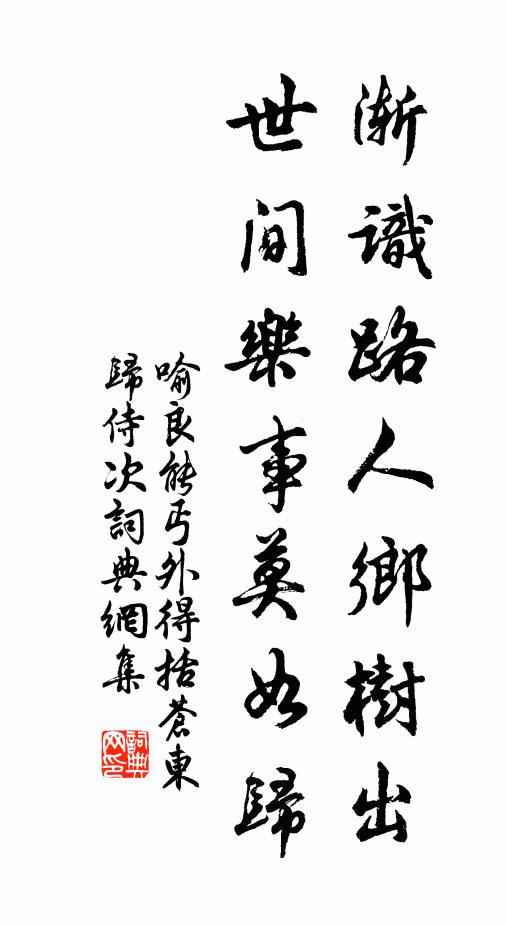 漸識路人鄉樹出
世間樂事莫如歸
喻良能丐外得括蒼東
歸侍次詞典網集
詞典網印